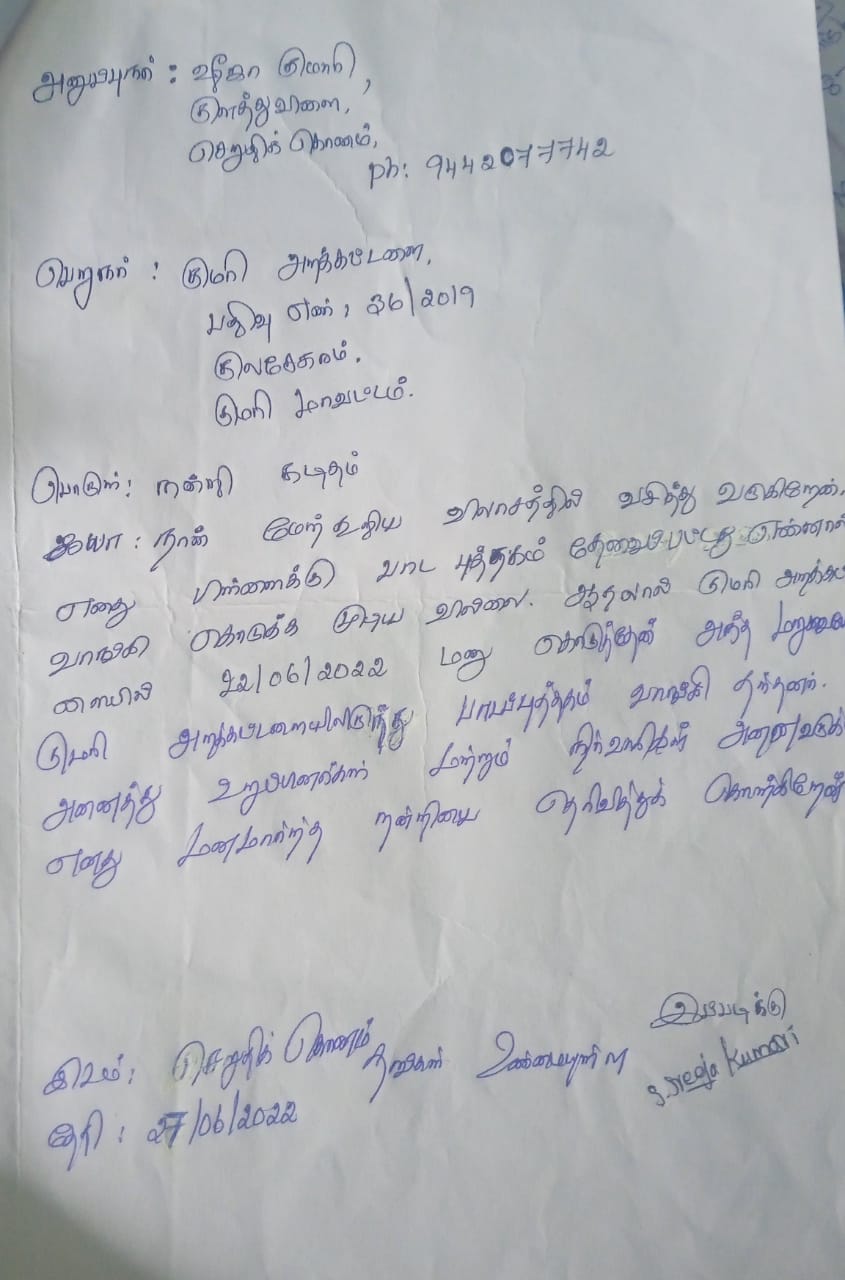 அனுப்புநர் : ஷீஜா குமாரி,
குளத்துவிளை,
செறுதிக் கோணம்,
ph: 9442077742
பெறுநர் : குமரி அறக்கட்டளை,
பதிவு எண் : 36/2019
குலசேகரம்.
குமரி மாவட்டம்.
பொருள் : நன்றி கடிதம்
ஐயா : நான் மேற்கூறிய விலாசத்தில் வசித்து வருகிறேன்.
எனது பாட புத்தகம் தேவைப்பட்டது என்னால்
வாங்கி கொடுக்க முடிய வில்லை. ஆதலால் குமரி அறக்கட
ளையில் 22/06/2022 மனு கொடுத்தேன் அந்த
குமரி அறக்கட்டளையிலிருந்து பாடப்புத்தகம் வாங்கி தந்தனர்.
அனைத்து உறுப்பினர்கள் மற்றும் நிர்வாகிகள் அனைவருக்
எனது மனமார்ந்த நன்றியை தெரிவித்துக் கொள்கிறேன்
இப்படிக்கு
இடம் : செறுதிக் கோணம் தங்கள் உண்மையுள்ள S. Sreeja Kumari
தேதி : 27/06/2022